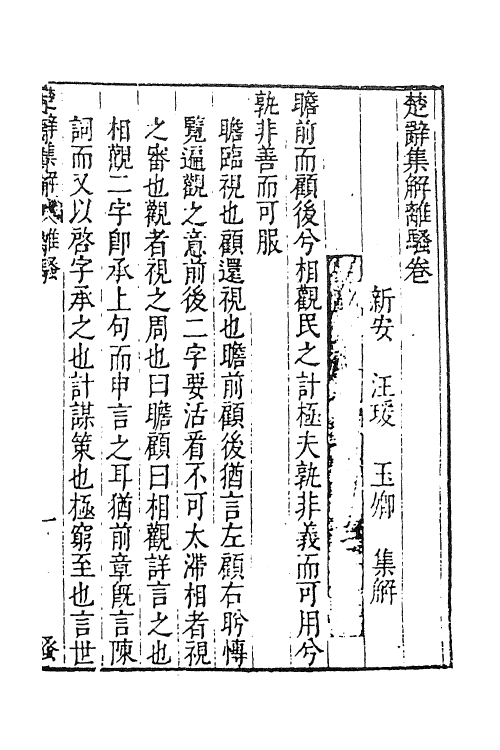 楚辭集解離騷卷
新安 汪瑗 玉卿 集解
瞻前而顧後兮相觀民之計極夫孰非義而可用兮
孰非善而可服
瞻臨視也顧還視也瞻前顧後猶言左顧右盻慱
覽遍觀之意前後二字要活看不可太滯相者視
之審也觀者視之周也曰瞻顧曰相觀詳言之也
相觀二字卽承上句而申言之耳猶前章旣言陳
詞而又以啓字承之也計謀策也極窮至也言世
楚辭集解 離騷
一